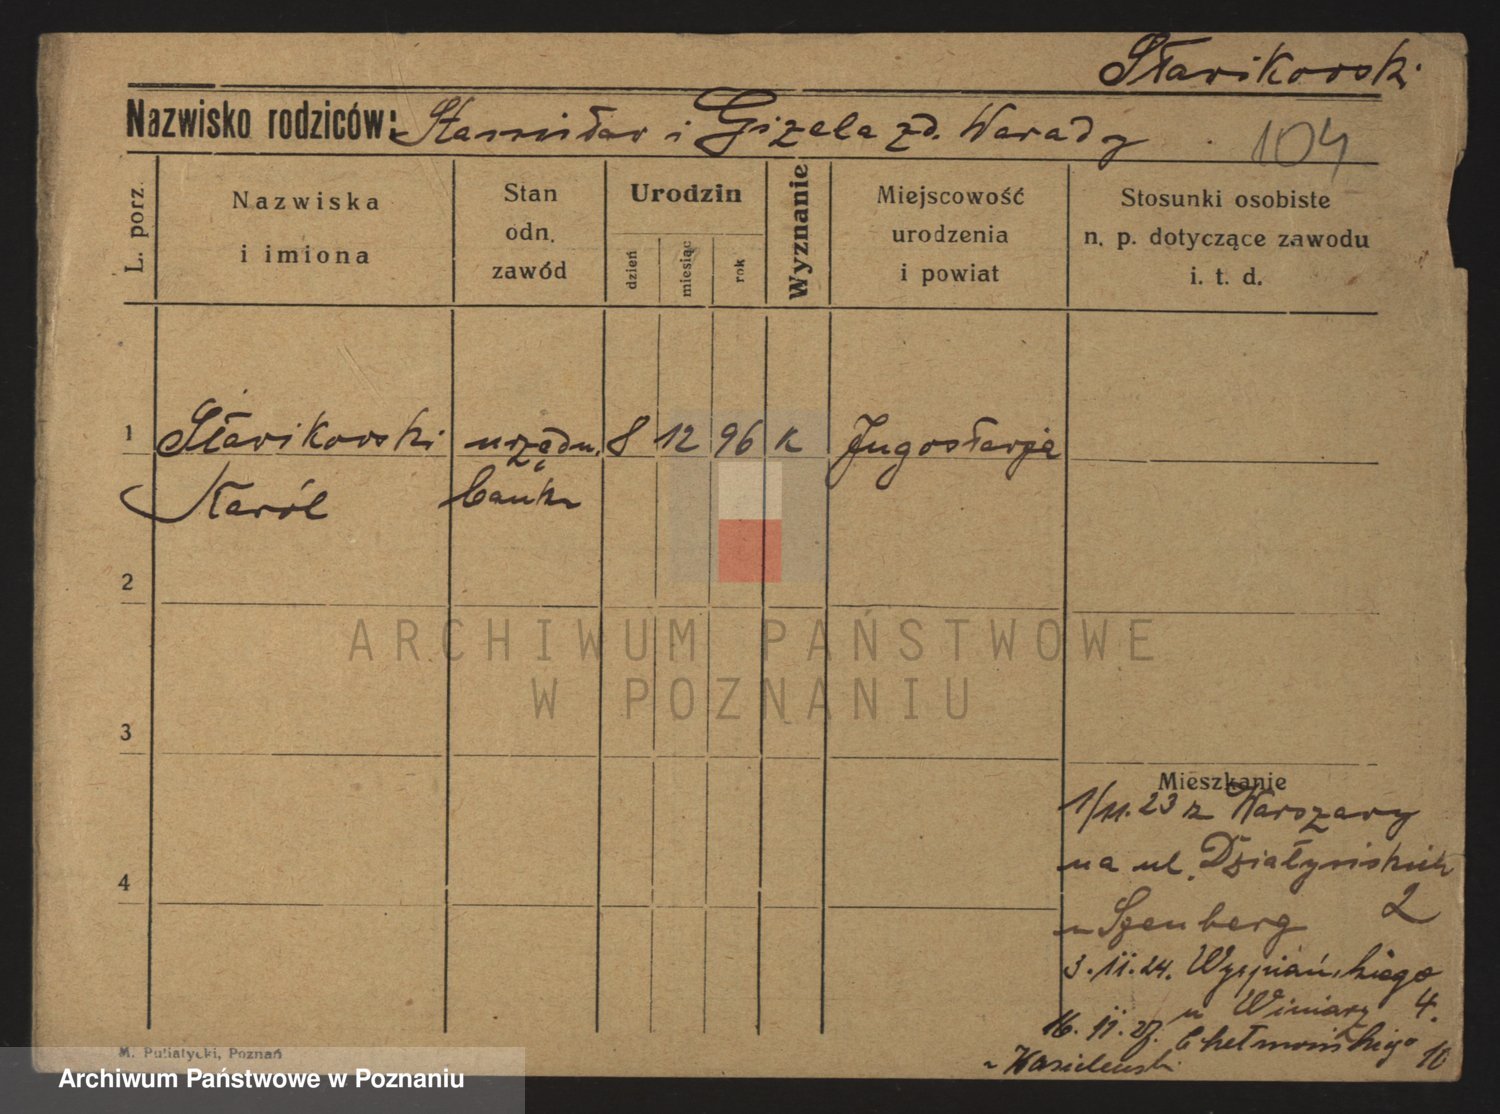 Sławikowski
Nazwisko rodziców: Stanisław i Gizela zd. Warady
104
L. porz.
Nazwiska
i imiona
Stan
odn.
zawód
Urodzin
dzień
miesiąc
rok
Wyznanie
Miejscowość
urodzenia
i powiat
Stosunki osobiste
n. p. dotyczące zawodu
i. t. d.
1 Sławikowski urzędn. 8 12 96 k Jugosławja
Karól bank
2
ARCHIWUM PAŃSTWOWE
W POZNANIU
3
Mieszkanie
1/11.23 z Warszawy
na ul. Działyńskich
4
2
u Szenberg
3.11.24. Wyspiańskiego
u Winiarz 4.
16. 11. 27. Chełmońskiego
10
u Wasielewski
M. Putiatycki, Poznań
Archiwum Państwowe w Poznaniu